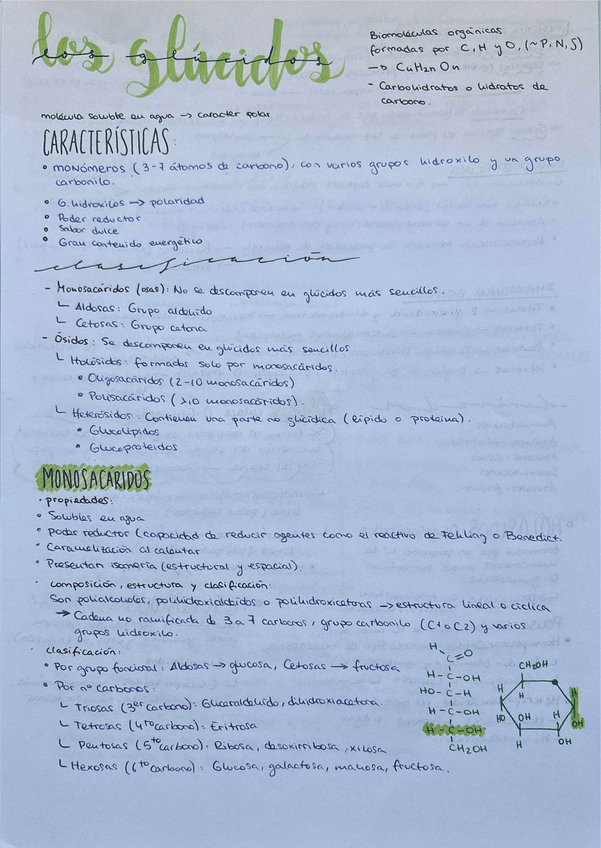 los glúcidos
Biomoléculas orgánicas
formadas por C, H y O, (~P, N, S)
→ CnH2nOn
- Carbohidratos o hidratos de
carbono.
molécula soluble en agua → caracter polar
CARACTERÍSTICAS:
• monómeros (3-7 átomos de carbono), con varios grupos hidroxilo y un grupo
carbonilo.
• G. hidroxilos → polaridad
• Poder reductor
• Sabor dulce
• Gran contenido energético
clasificación
- Monosacáridos (osas): No se descomponen en glúcidos más sencillos.
└ Aldosas: Grupo aldehido
└ Cetosas: Grupo cetona
- Ósidos: Se descomponen en glúcidos más sencillos
└ Holósidos: formados solo por monosacáridos.
• Oligosacáridos (2-10 monosacáridos)
• Polisacáridos (>10 monosacáridos).
└ Heterósidos: Contienen una parte no glicídica (lípido o proteina).
• Glucolípidos
• Glucoproteidos
MONOSACÁRIDOS
· propiedades:
• Solubles en agua
• Poder reductor (capacidad de reducir agentes como el reactivo de Fehling o Benedict.
• Caramelización al calentar
• Presentan isomería (estructural y espacial).
· composición, estructura y clasificación:
Son polialcoholes, polihidroxialdeidos o polihidroxicetonas → estructura lineal o cíclica
→ Cadena no ramificada de 3 a 7 carbonos, grupo carbonilo (C1 o C2) y varios
grupos hidroxilo.
· clasificación:
• Por grupo funcional: Aldosas → glucosa, Cetosas → fructosa
• Por nº carbonos:
└ Triosas (3er carbono): Gliceraldehído, dihidroxiacetona.
└ Tetrosas (4to carbono): Eritrosa
└ Pentosas (5to carbono): Ribosa, desoxirribosa, xilosa
└ Hexosas (6to carbono): Glucosa, galactosa, manosa, fructosa.
H C=O
H-C-OH
HO-C-H
H-C-OH
H-C-OH
CH2OH
CH2OH
H H
H
HO OH H OH
H OH